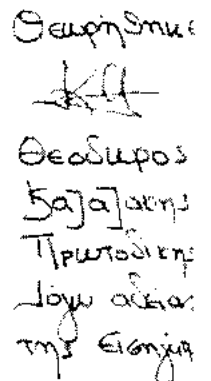 Θεωρήθηκε
Θεόδωρος
Πρωτοδίκης
λόγω άδεια
της Εισηγή